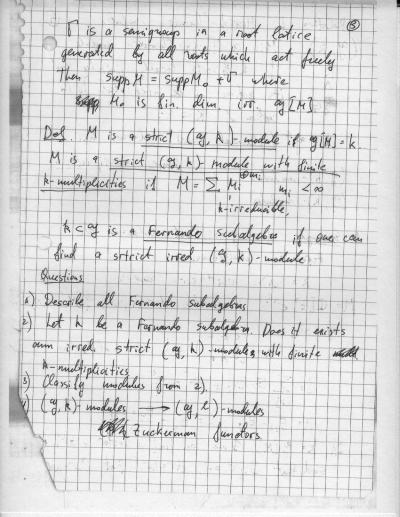 ③
Γ is a semigroup in a root lattice
generated by all roots which act freely
Then supp M = supp M₀ + Γ where
M₀ is fin. dim irr. g[M]
Def. M is a strict (g, k)-module if g[M] = k.
M is a strict (g, k)-module with finite
k-multiplicities if M = ∑ Mᵢ^{⊕mᵢ} mᵢ < ∞
k-irreducible,
k ⊂ g is a Fernando subalgebra if one can
find a strict irred (g, k)-module
Questions
1) Describe all Fernando subalgebras
2) Let k be a Fernando subalgebra. Does it exists
irred. strict (g, k)-modules with finite
k-multiplicities
3) Classify modules from 2).
4) (g, k)-modules ⟶ (g, l)-modules
Zuckerman functors